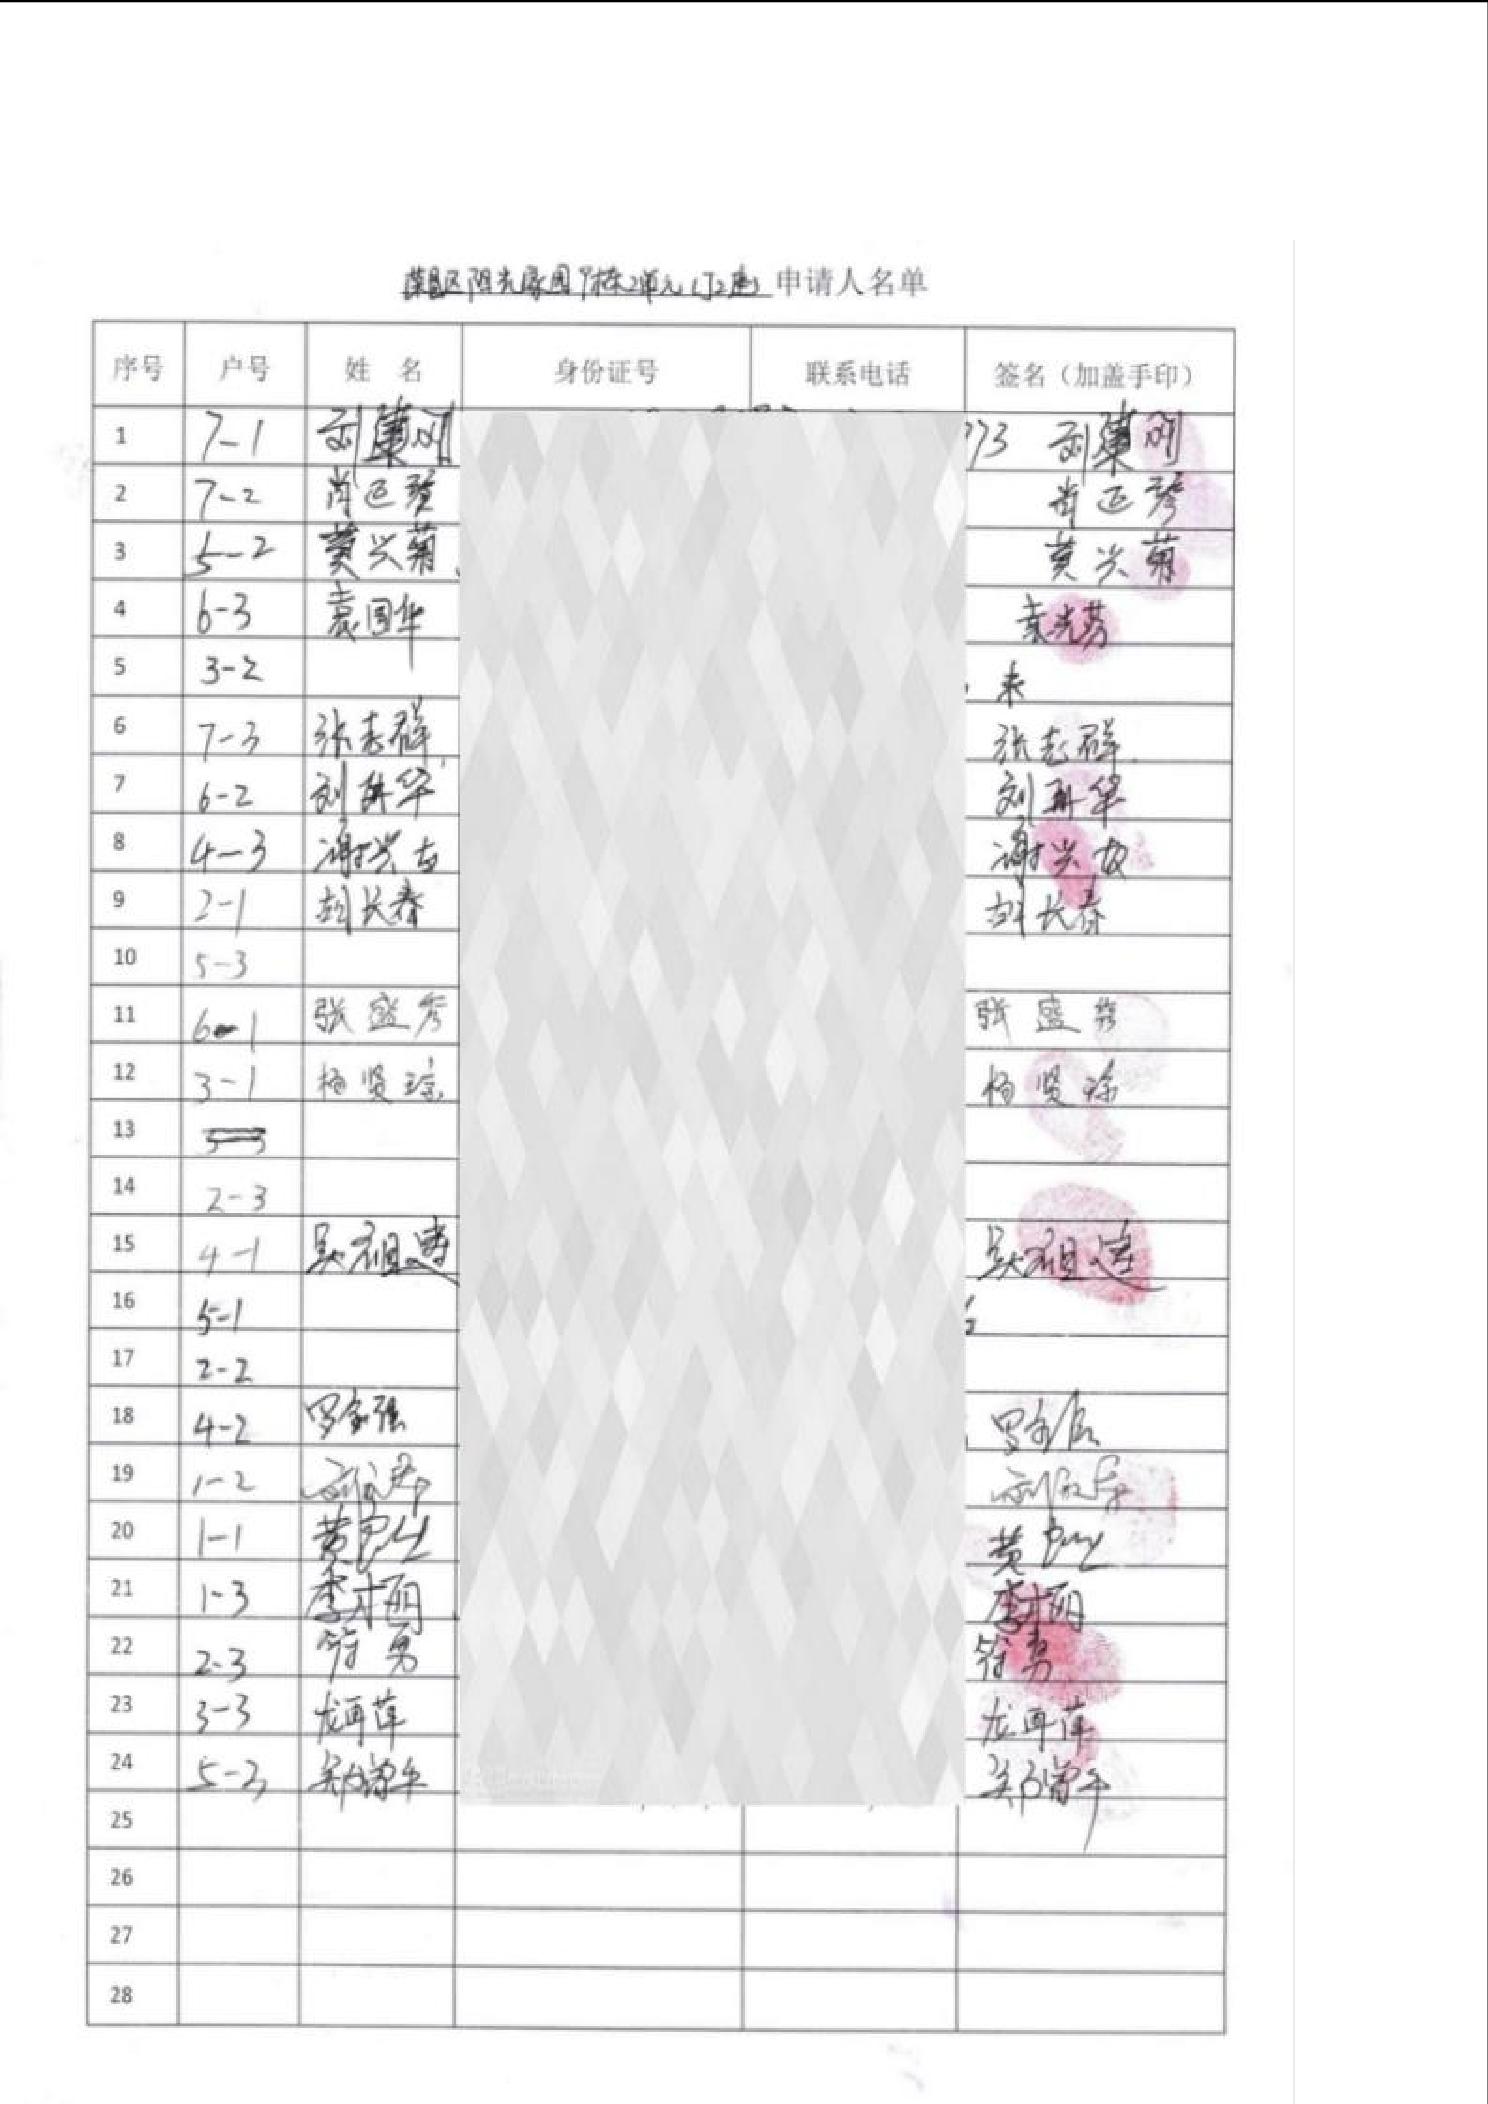 荣昌区阳光家园7栋2单元(J2座) 申请人名单
序号 户号 姓 名 身份证号 联系电话 签名（加盖手印）
1 7-1
2 7-2 肖
3 5-2 黄兴菊 黄兴菊
4 6-3 袁国华 袁光芬
5 3-2 来
6 7-3 张志群 张志群
7 6-2 刘再华 刘再华
8 4-3 谢兴友 谢兴友
9 2-1 胡长春 胡长春
10 5-3
11 6-1 张盛秀 张盛秀
12 3-1 杨贤琼 杨贤琼
13
14 2-3
15 4-1 吴祖连 吴祖连
16 5-1
17 2-2
18 4-2 罗家强 罗家强
19 1-2
20 1-1 黄
21 1-3 李才丽 李才丽
22 2-3 符勇 符勇
23 3-3 龙再萍 龙再萍
24 5-3 郑增平 郑增平
25
26
27
28